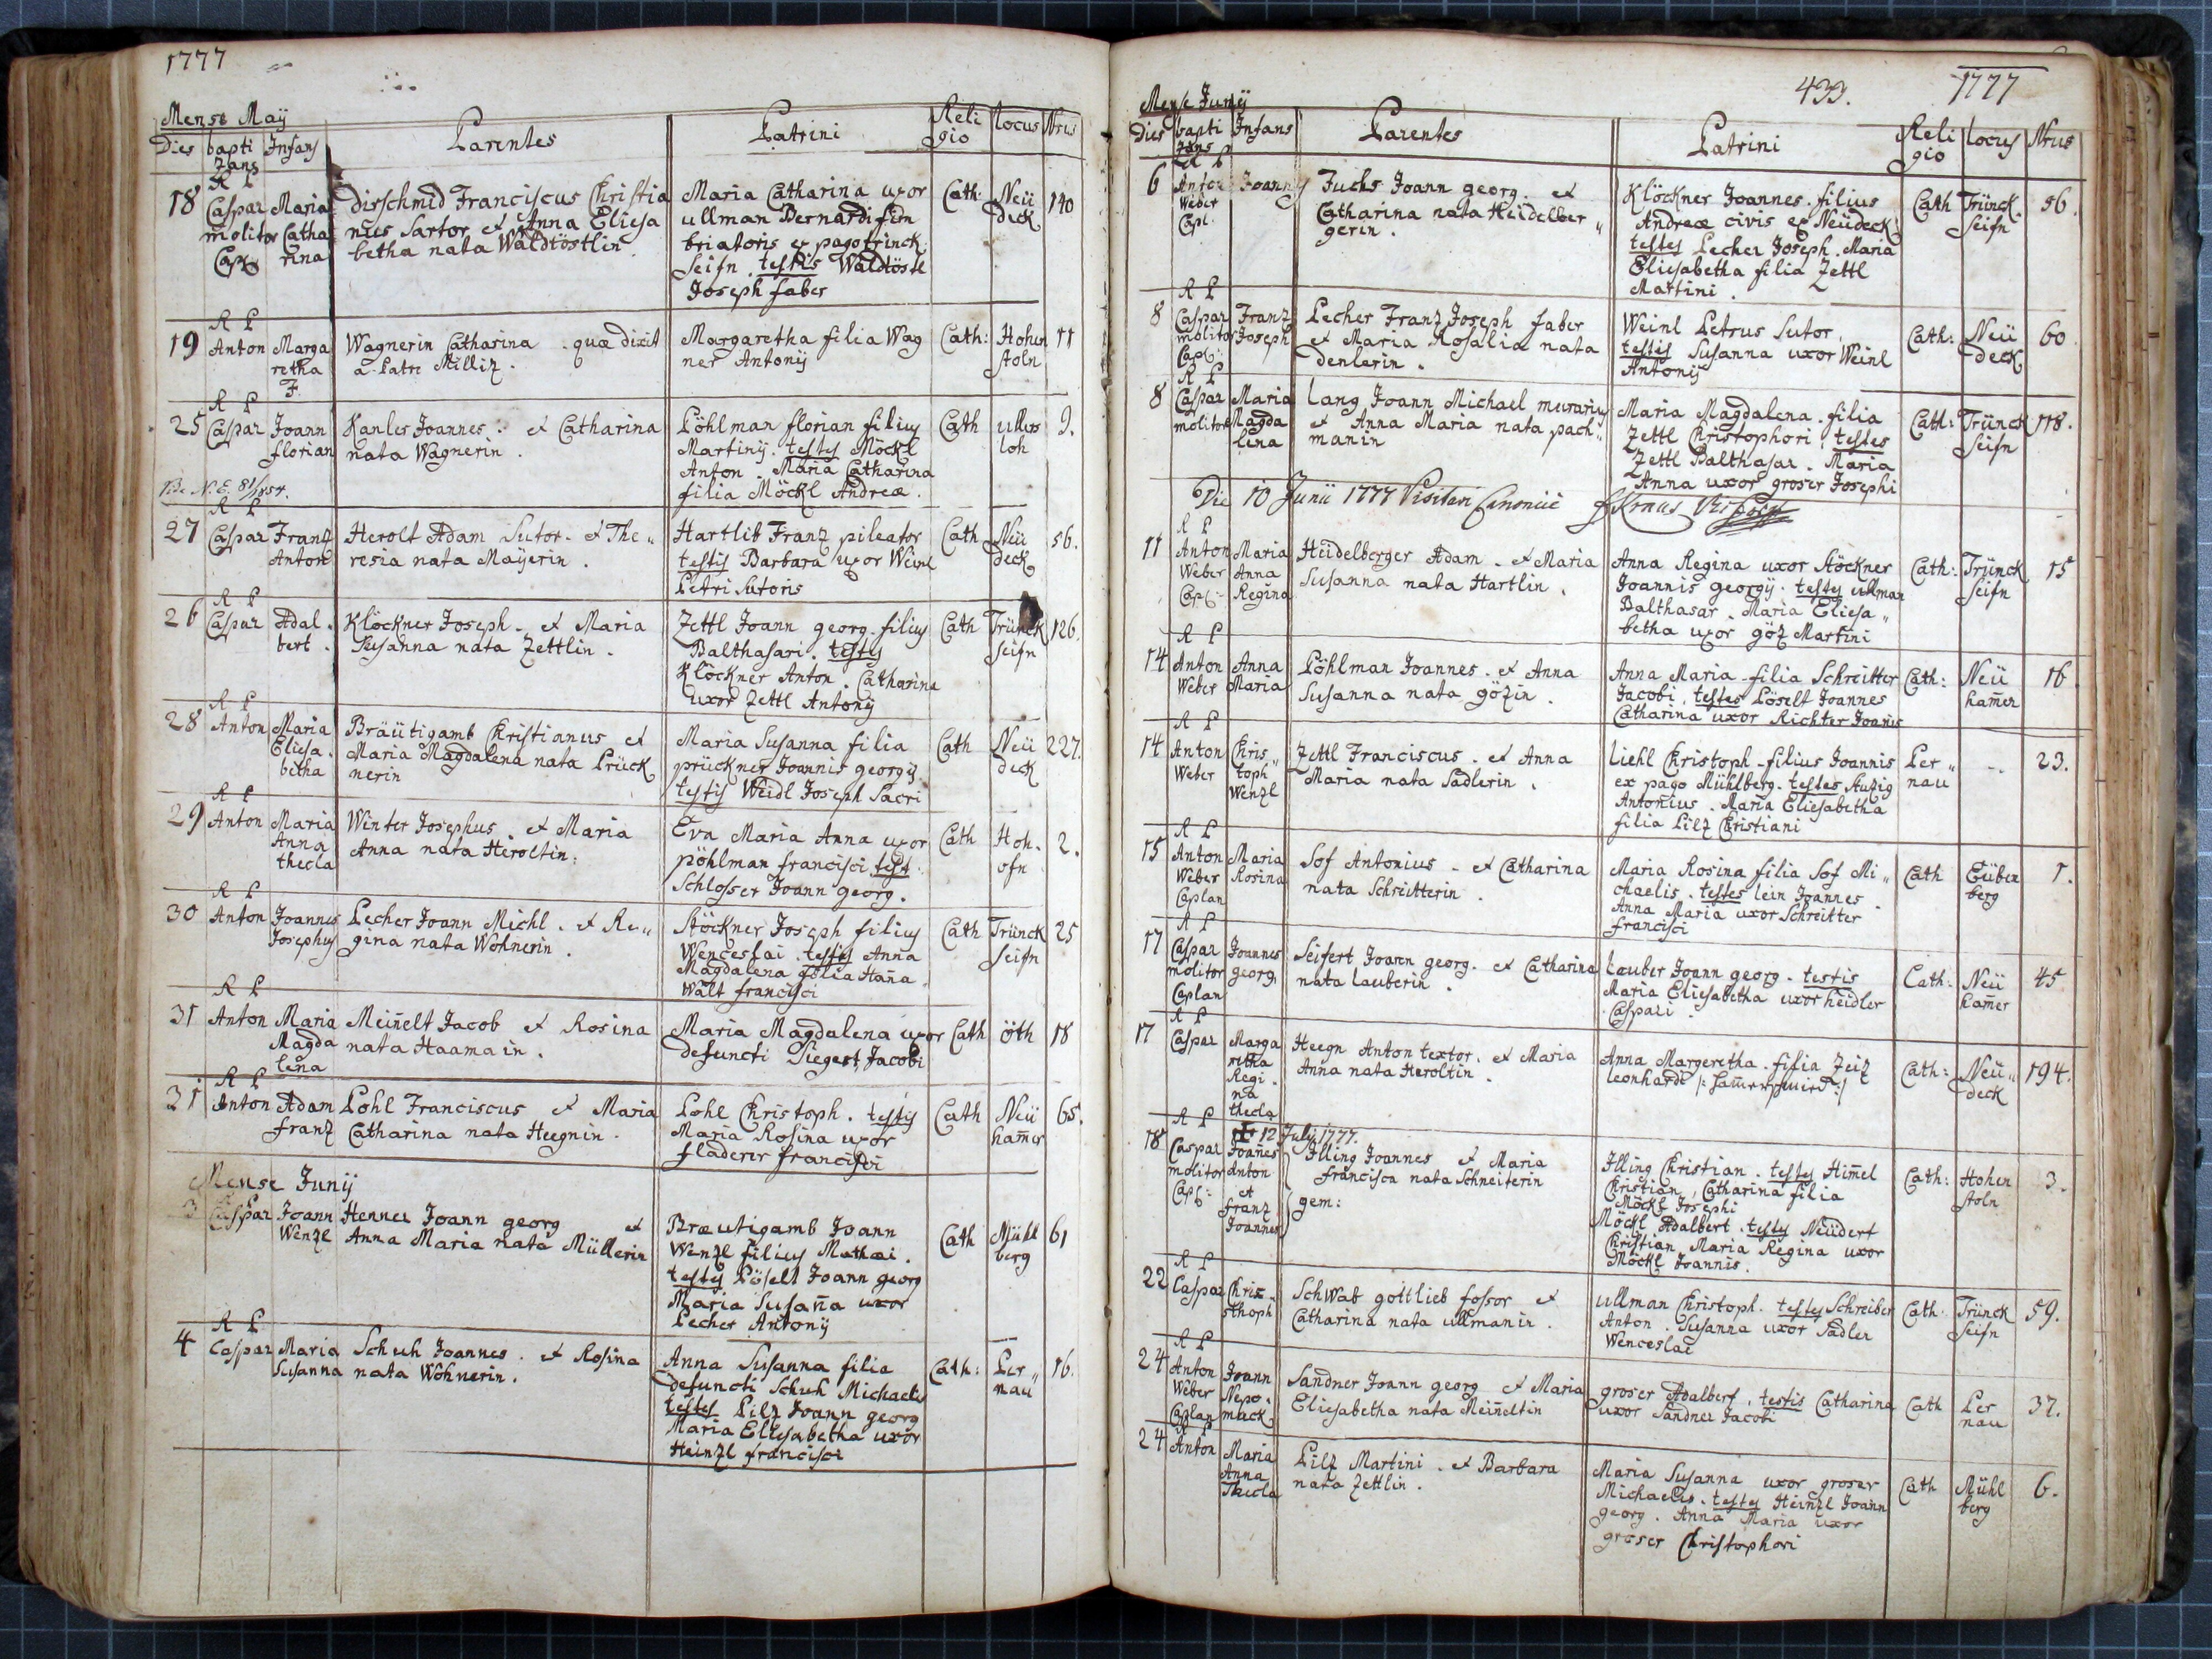 1777
Mense Maÿ
Dies bapti Infans Parentes Patrini Reli locus Nrus
zans gio
R P
18 Caspar Maria Dirschmid Franciscus Christia Maria Catharina uxor Cath: Neü 140
molitor Catha nus Sartor et Anna Eliesa ullman Bernardi fim deck
Capl rina betha nata Waldtöstlin briatoris ex pago trinck
seifn. testis Waldtöstl
Joseph faber
R P
19 Anton Marga Wagnerin Catharina quæ dixit Margaretha filia Wag Cath: Hohen 11
retha a Patre Milliz. ner Antonÿ stoln
R P
25 Caspar Joann Kanler Joannes. et Catharina Pöhlman florian filius Cath ullers 9.
florian nata Wagnerin. Martinÿ. testes Möckl loh
Anton. Maria Catharina
N. E. 81/1854. filia Möckl Andreæ.
R P
27 Caspar Franz Herolt Adam Sutor. et The„ Hartlib Franz pileator Cath Neü 56.
Anton resia nata Maÿerin. testis Barbara uxor Weinl deck
Petri Sutoris
R P
26 Caspar Adal. Klöckner Joseph. et Maria Zettl Joann georg. filius Cath Trünck 126.
bert. Susanna nata Zettlin. Balthasari. testes seifn
Klöckner Anton. Catharina
uxor Zettl Antonÿ
R P
28 Anton Maria Bräütigamb Christianus et Maria Susanna filia Cath Neü 227.
Eliesa. Maria Magdalena nata Prück prückner Joannis georgÿ. deck
betha nerin testis Weidl Joseph Sacri
R P
29 Anton Maria Winter Josephus. et Maria Eva Maria Anna uxor Cath Hoh. 2.
Anna Anna nata Heroltin: pöhlman francisci test. ofn
thecla Schlosser Joann georg.
R P
30 Anton Joannes Pecher Joann Michl. et Re„ Stöckner Joseph filius Cath Trünck 25
Josephus gina nata Wohnerin. Wenceslai. testes Anna seifn
Magdalena filia Hana
Walt francisci
R P
31 Anton Maria Meiñelt Jacob et Rosina Maria Magdalena uxor Cath öth 18
Magda nata Haamain. defuncti Siegert Jacobi
leña
R P
31 Anton Adam Pohl Franciscus et Maria Pohl Christoph. testes Cath Neü 65.
franz Catharina nata Heegnin. Maria Rosina uxor ham̃er
fladerer francisci
Mense Junÿ
3 Caspar Joann Henner Joann georg et Bræutigamb Joann Cath Mühl 61
Wenzl Anna Maria nata Müllerin Wenzl filius Mathæi. berg
testes Pöselt Joann georg
Maria Susaña uxor
Pecher Antonÿ
R P
4 Caspar Maria Schuh Joannes. et Rosina Anna Susanna filia Cath: Per„ 16.
Susanna nata Wohnerin. defuncti Schuh Michaelis nau
testes Pilz Joann georg
Maria Eliesabetha uxor
Heinzl francisci
433. 1777
Mense Junÿ
Dies bapti Infans Parentes Patrini Reli locus Nrus
zans gio
R P
6 Anton Joannes Fuchs Joann georg. et Klöckner Joannes. filius Cath Trünck 56.
Weber Catharina nata Heidelber„ Andreæ civis ex Neüdeck seifn
Capl. gerin. testes Pecher Joseph. Maria
Eliesabetha filia Zettl
Martini.
R P
8 Caspar Franz Pecher Franz Joseph faber Weinl Petrus Sutor. Cath: Neü 60.
molitor Joseph et Maria Rosalia nata testis Susanna uxor Weinl deck
Capl: denlerin. Antonÿ
R P
8 Caspar Maria Lang Joann Michael murarius Maria Magdalena. filia Cath: Trünck 118.
molitor Magda et Anna Maria nata pach„ Zettl Christophori. testes seifn
lena manin Zettl Balthasar. Maria
Anna uxor groser Josephi
Die 10 Junii 1777 Visitavi Canonicè
R P
11 Anton Maria Heidelberger Adam. et Maria Anna Regina uxor Stöckner Cath: Trünck 15
Weber Anna Susanna nata Hartlin. Joannis georgÿ. testes ullman seifn
Capl: Regina Balthasar. Maria Eliesa„
betha uxor göz Martini
R P
14 Anton Anna Pöhlman Joannes. et Anna Anna Maria. filia Schreitter Cath: Neü 16.
Weber Maria Susanna nata gözin. Jacobi. testes Pöselt Joannes ham̃er
Catharina uxor Richter Joañis
R P
14 Anton Chris„ Zettl Franciscus. et Anna Liehl Christoph. filius Joannis Per„ 23.
Weber toph Maria nata Sadlerin. ex pago Mühlberg. testes Auzig nau
Wenzl Antonius. Maria Eliesabetha
filia Pilz Christiani
R P
15 Anton Maria Sof Antonius. et Catharina Maria Rosina filia Sof Mi„ Cath Eüben 1.
Weber Rosina nata Schreitterin. chaelis. testes lein Joannes. berg
Caplan Anna Maria uxor Schreitter
francisci
R P
17 Caspar Joannes Seifert Joann georg. et Catharina Lauber Joann georg. testis Cath: Neü 45
molitor georg nata Lauberin. Maria Eliesabetha uxor heidler ham̃er
Caplan Caspari.
R P
17 Caspar Marga Heegn Anton textor. et Maria Anna Margeretha. filia Zeiz Cath: Neü„ 194.
retha Anna nata Heroltin. leonhardi deck
Regi.
na
thecla
R P † 12 Julÿ 1777.
18 Caspar Joañes Illing Joannes et Maria Illing Christian. testes Him̃el Cath: Hohen 3.
molitor Anton Francisca nata Schneiterin Christian, Catharina filia stoln
Capl: et gem: Möckl Josephi
franz Möckl Adalbert. testes Neüdert
Joannes Christian. Maria Regina uxor
Möckl Joannis.
R P
22 Caspar Chris„ Schwab gottlieb fossor et ullman Christoph. testes Schreiber Cath. Trünck 59.
sthoph Catharina nata ullmanin. Anton. Susanna uxor Sadler seifn
Wenceslai
R P
24 Anton Joann Sandner Joann georg et Maria groser Adalbert. testis Catharina Cath Per 37.
Weber Nepo. Eliesabetha nata Meiñeltin uxor Sandner Jacobi nau
Caplan muck
R P
24 Anton Maria Pilz Martini. et Barbara Maria Susanna uxor groser Cath Mühl 6.
Anna nata Zettlin. Michaelis. testes Heinzl Joann berg
Thecla georg. Anna Maria uxor
groser Christophori